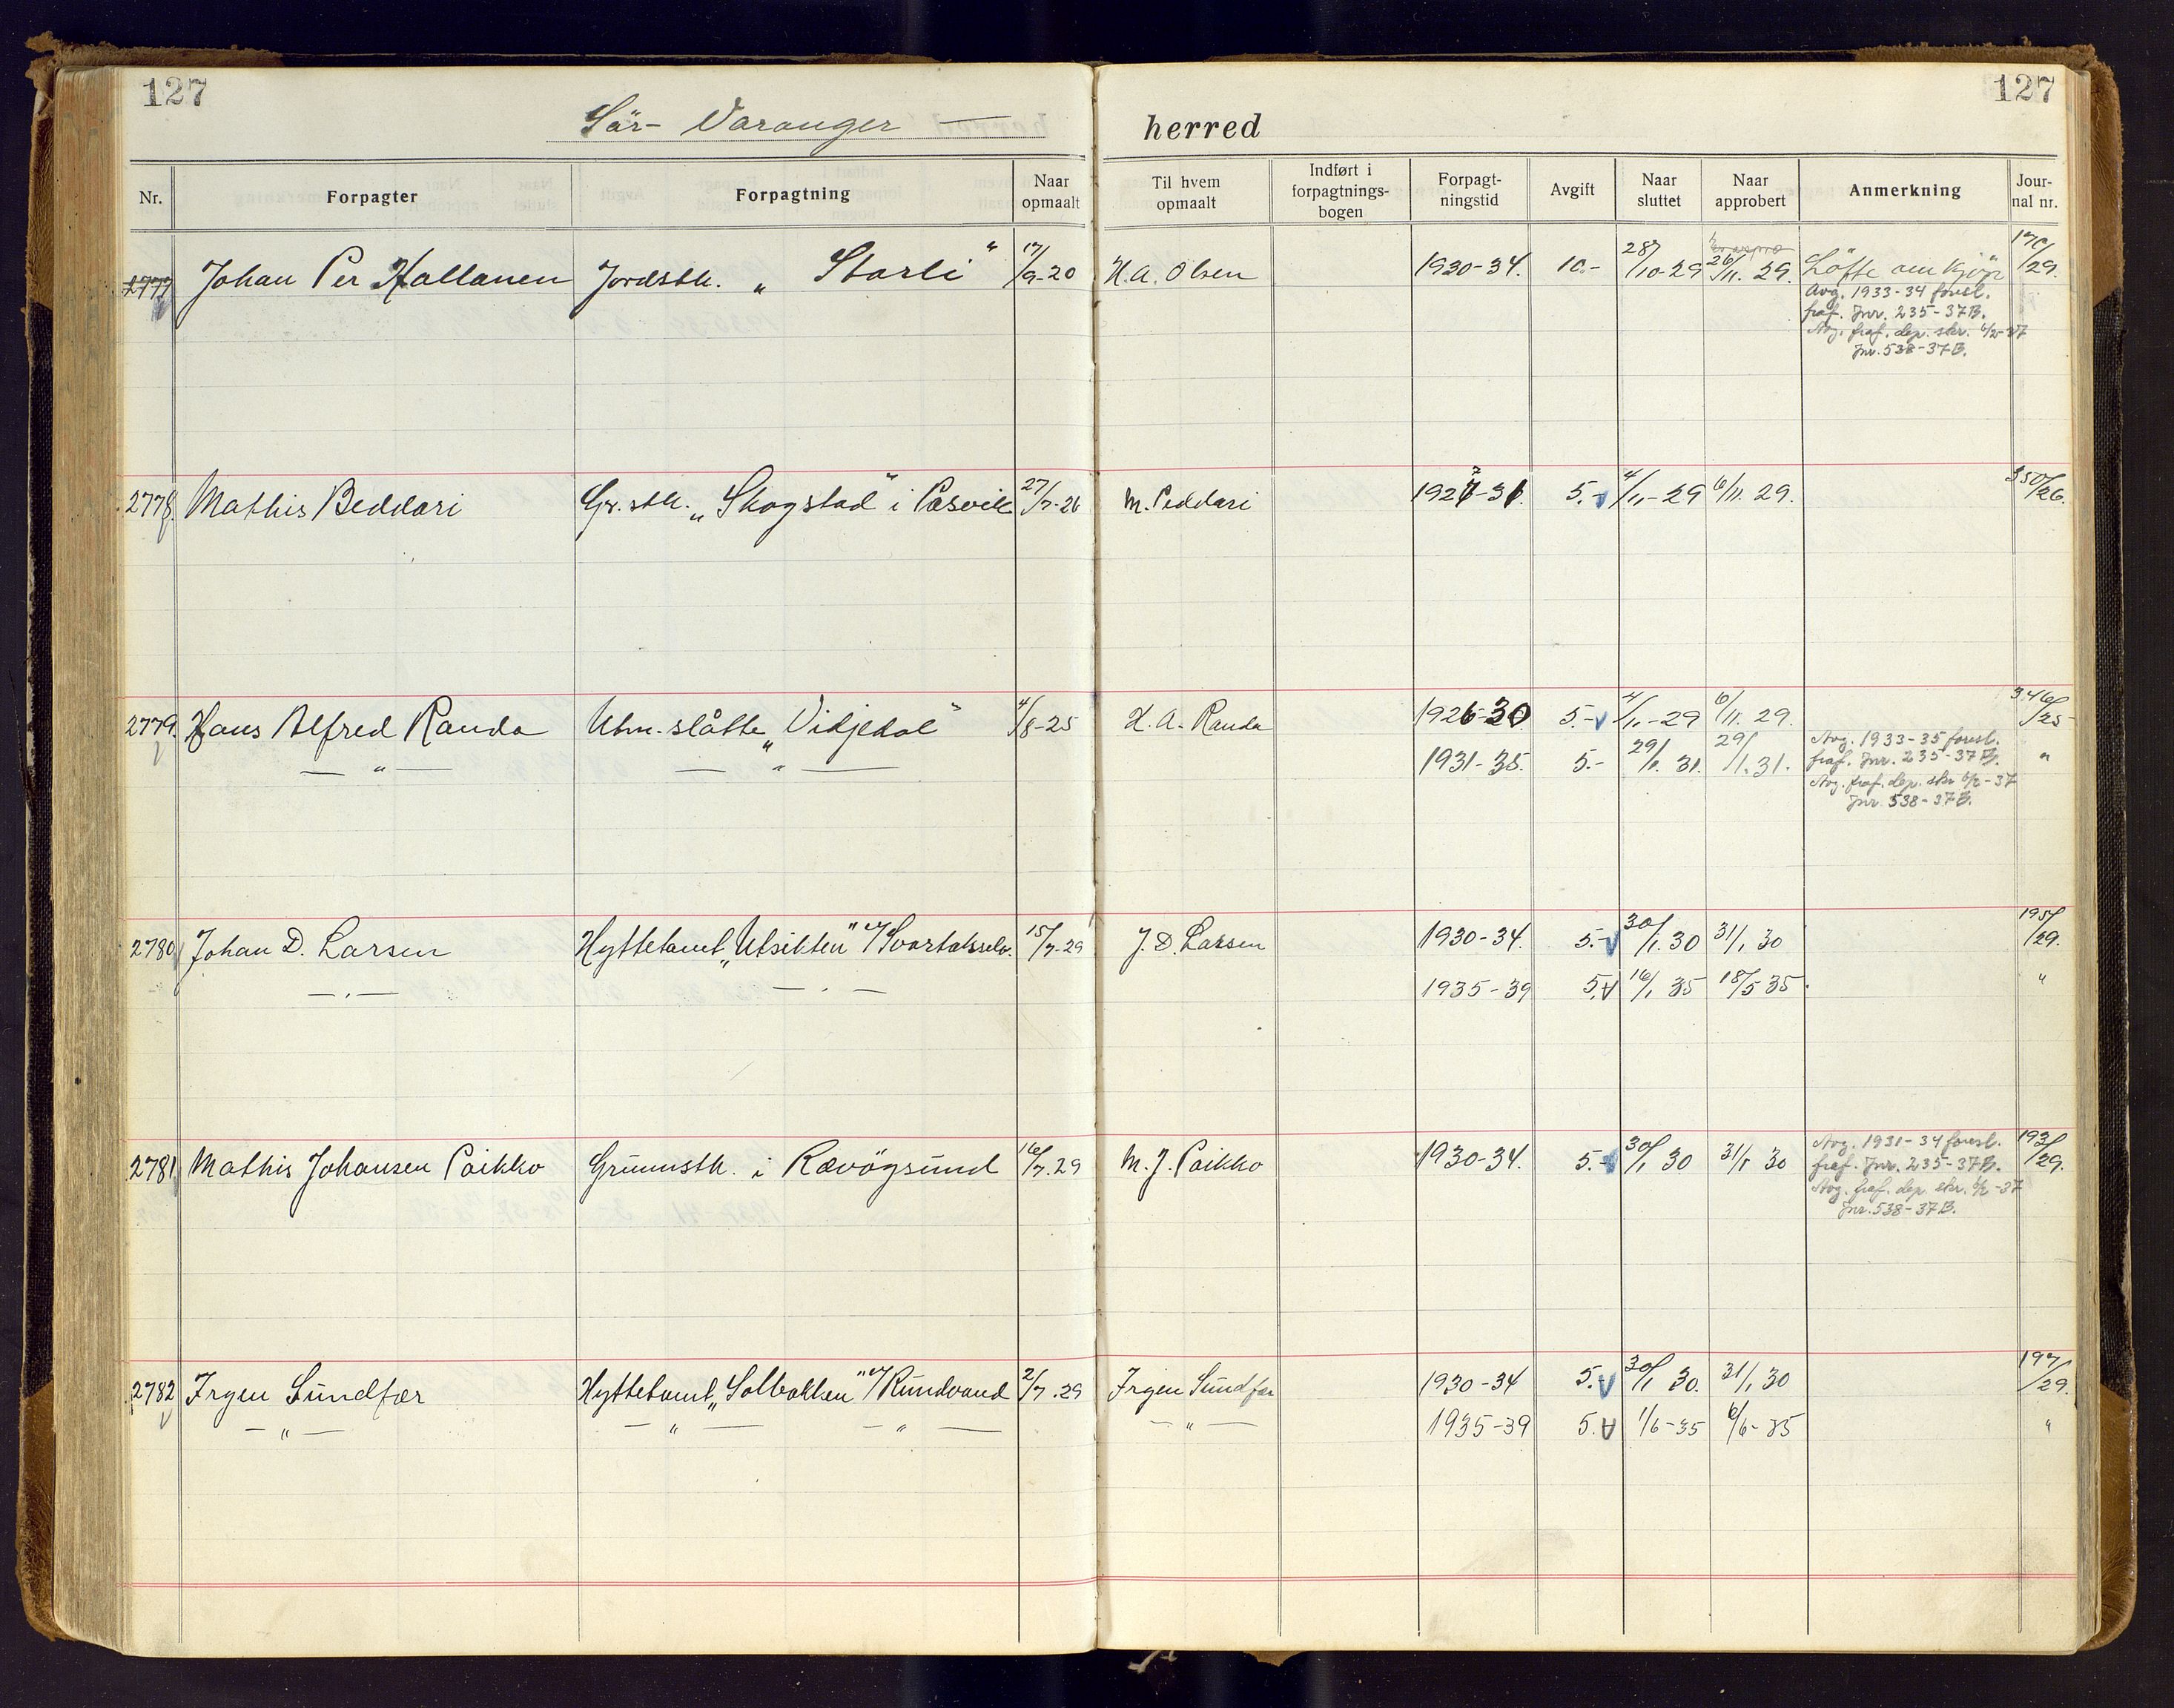 127
127
Sör-Varanger — herred
Nr. Forpagter Forpagtning Naar opmaalt Til hvem opmaalt Indført i forpagtnings-bogen Forpagt-ningstid Avgift Naar sluttet Naar approbert Anmerkning Jour-nal nr.
2777 Johan Per Hallanen Jordstk. „Storli" 17/9-20 H. A. Olsen 1930-34. 10.- 28/10-29 26/11. 29. Löfte om kjöp 170/29.
Avg. 1933-34 foresl.
fraf. Jnr. 235-37B.
Avg. fraf. dep. skr. 6/2-37
Jnr. 538-37B.
2778. Mathis Beddari Gr. stk. „Skogstad" i Pasvik 27/7-26 M. Peddari 1927-31. 5.- 4/11-29 6/11. 29. 350/26.
2779. Hans Alfred Randa Utm. slåtte „Vidjedal" 4/8-25 H. A. Randa 1926-30 5.- 4/11-29 6/11. 29. 346/25
— " — — " — 1931-35. 5.- 29/1. 31. 29/1. 31. "
Avg. 1933-35 foresl.
fraf. Jnr. 235-37B.
Avg. fraf. dep. skr 6/2-37
Jnr. 538-37B.
2780 Johan D. Larsen Hyttetomt „Utsikten" v/ Svartaksselv. 15/7-29 J. D. Larsen 1930-34. 5.- 30/1. 30 31/1 30 195/29.
— " — — " — 1935-39 5.- 16/1 35 18/5 35. "
2781. Mathis Johansen Paikko Grunnstk. i Rævögsund 16/7.29 M. J. Paikko 1930-34. 5.- 30/1 30 31/1 30 193/29.
Avg. 1931-34 foresl.
fraf. Jnr. 235-37B.
Avg. fraf. dep. skr. 6/2-37
Jnr. 538-37B.
2782 Irgen Sundfær Hyttetomt „Solbakken" v/ Rundvand 2/7.29 Irgen Sundfær 1930-34 5.- 30/1 30. 31/1 30 197/29.
— " — — " — — " — — " — 1935-39 5. 1/6-35 6/6-35 "